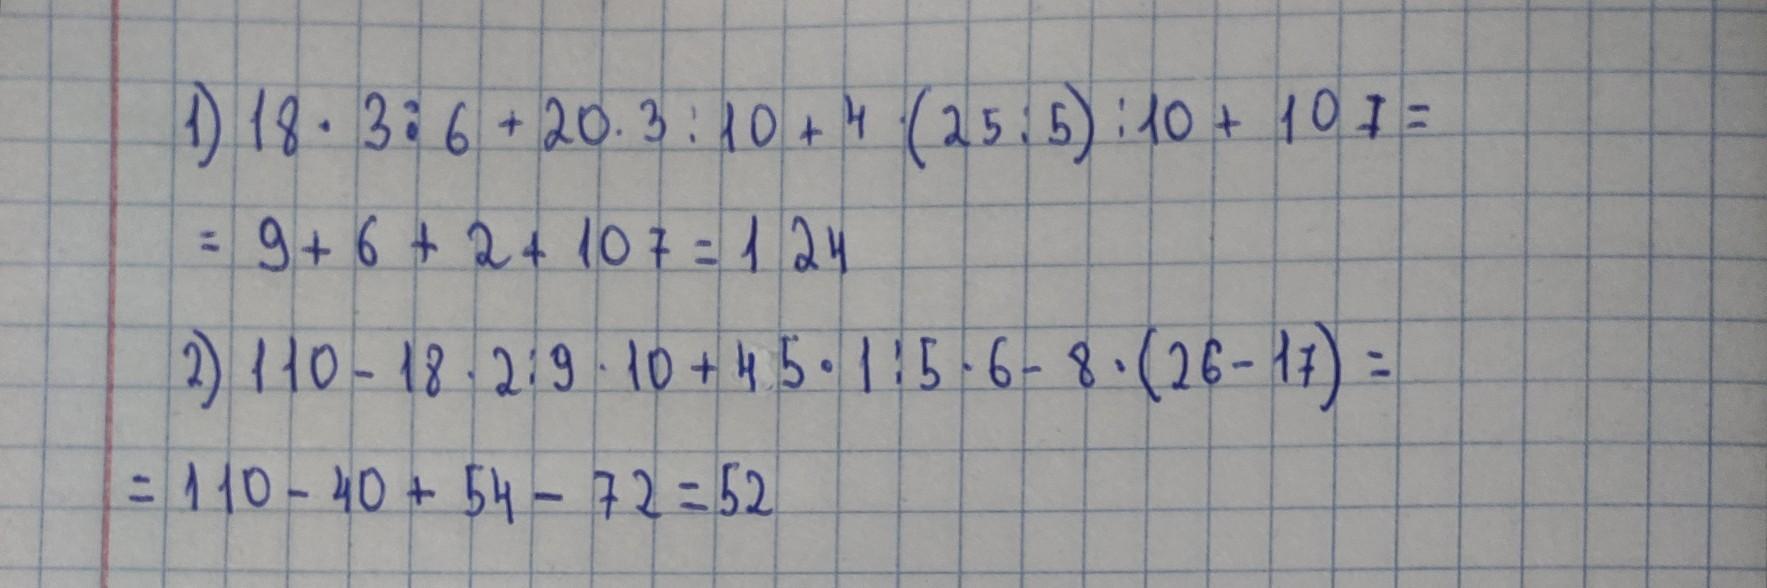 1) 18 · 3 : 6 + 20 · 3 : 10 + 4 · (25 : 5) : 10 + 107 =
= 9 + 6 + 2 + 107 = 124
2) 110 - 18 · 2 : 9 · 10 + 45 · 1 : 5 · 6 - 8 · (26 - 17) =
= 110 - 40 + 54 - 72 = 52